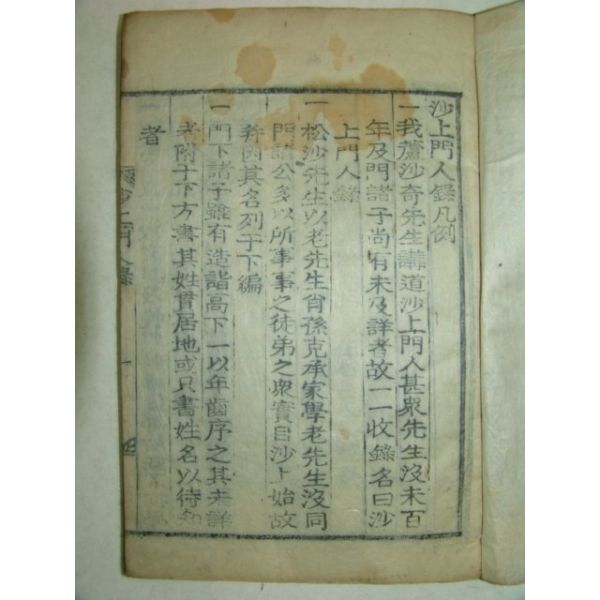 沙上門人錄凡例
一我蘆沙奇先生講道沙上門人甚衆先生沒未百
年及門諸子尙有未及詳者故一一收錄名曰沙
上門人錄
一松沙先生以老先生肖孫克承家學老先生沒同
門諸公多以所事事之徒弟之衆實自沙上始故
幷因其名列于下編
一門下諸子雖有造詣高下一以年齒序之其未詳
者附于下方書其姓貫居地或只書姓名以待知
者
沙上門人錄
一